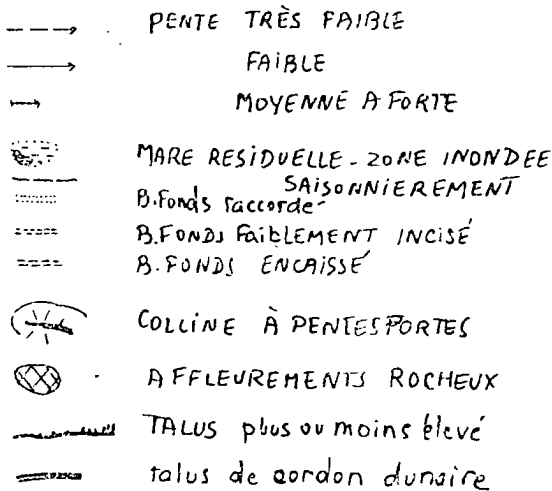 PENTE TRÈS FAIBLE
FAIBLE
MOYENNE A FORTE
MARE RESIDUELLE - ZONE INONDEE
SAISONNIEREMENT
B. Fonds raccordé
B. FONDS FAIBLEMENT INCISÉ
B. FONDS ENCAISSÉ
COLLINE À PENTES FORTES
AFFLEUREMENTS ROCHEUX
TALUS plus ou moins élevé
talus de cordon dunaire